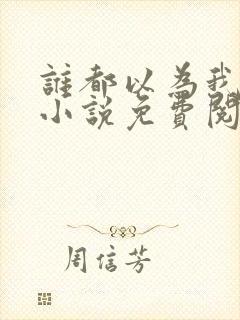 誰都以為我
小說免費閱
周信芳